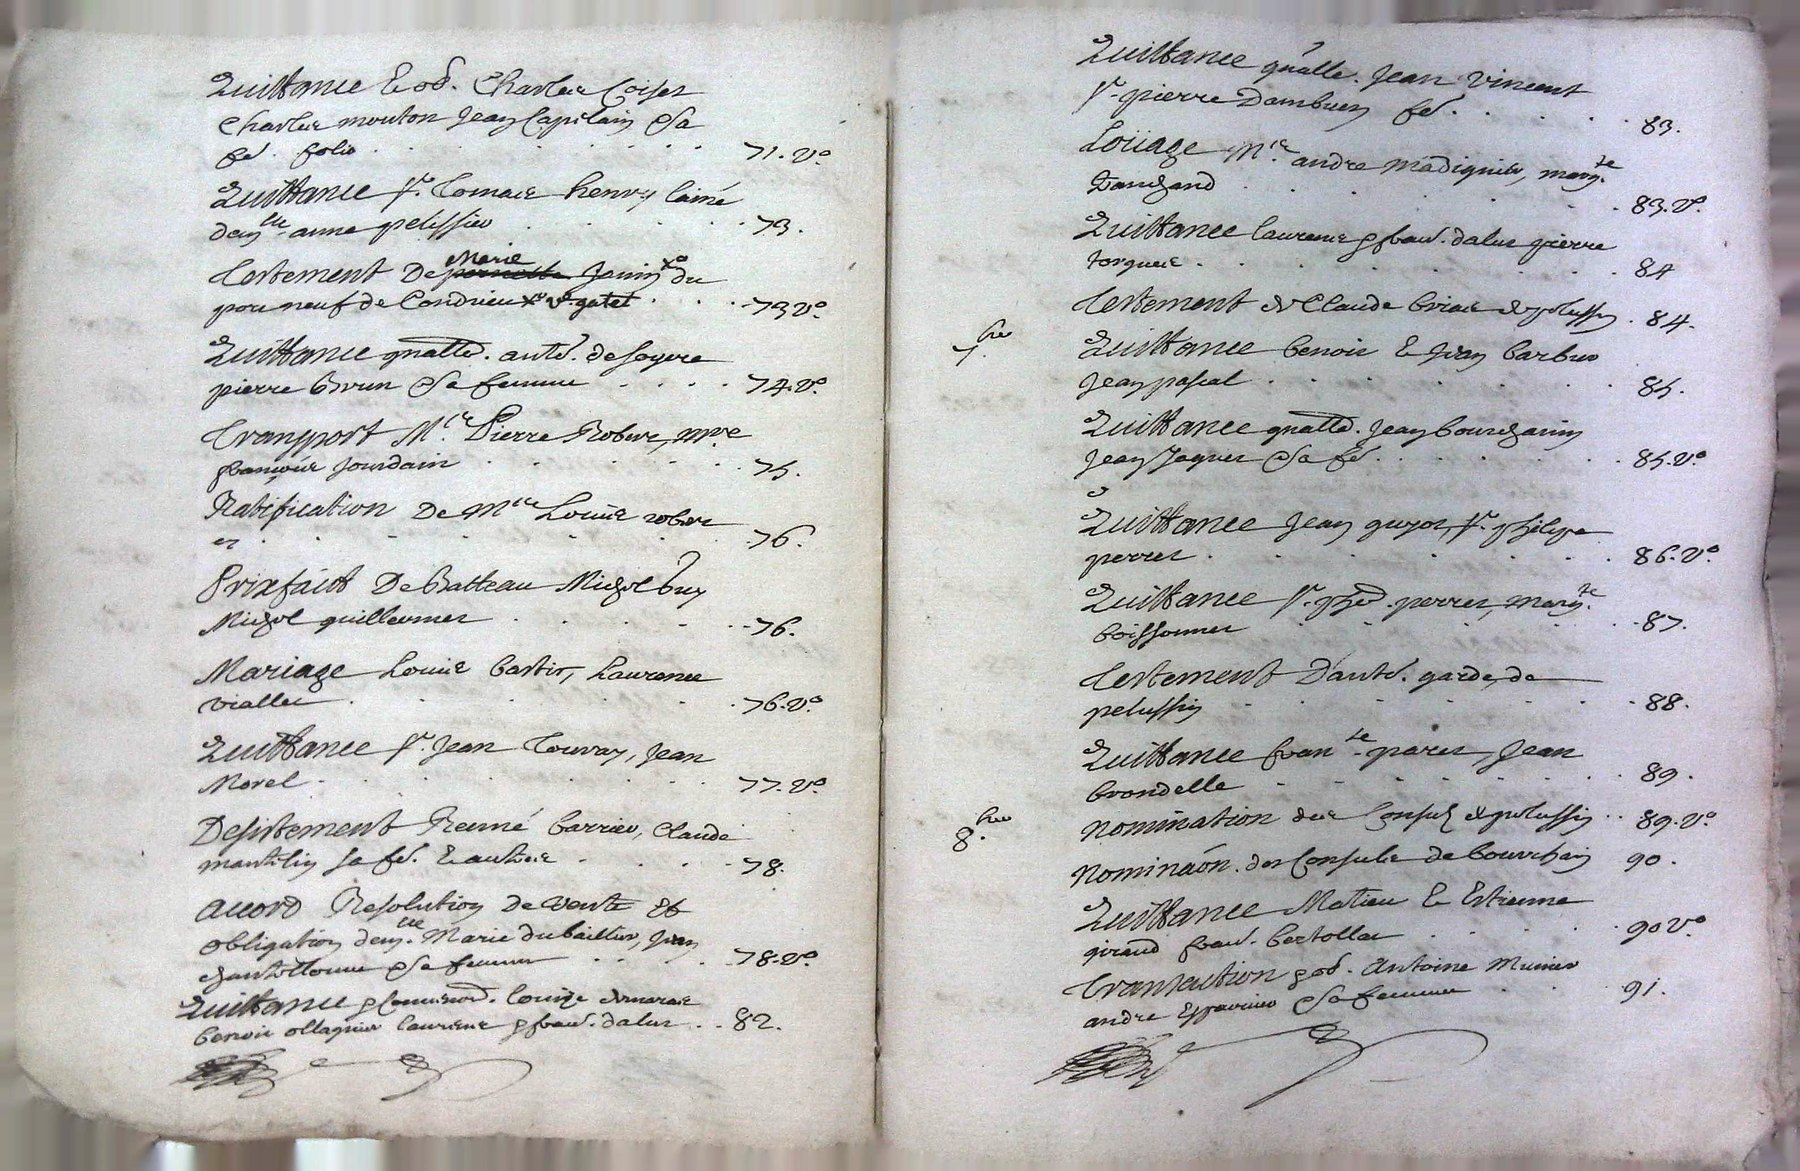 Quittance & ob. Charles Coiset
Charles mouton Jean Capitain & sa
fe. folio 71. v.o
Quittance Sr. Thomas henry lainé
demlle. anne pelissier 73.
Testement De Marie Janin vo du
pou neuf de Condrieu ve. gatet 73 v.o
Quittance quallé. anté. de soyere
pierre brun & sa femme 74. v.o
Transport Mre Pierre Robert, mre
françois Jourdain 75.
Ratification De Mre Louis robert
76.
Prixfaict De Batteau Michel
Michel guillermet 76.
Mariage Louis bastin, Laurence
viallet 76. v.o
Quittance Sr. Jean Touvay, Jean
Morel 77. v.o
Desistement Reimé barrier, Claude
mantelin sa fe. & autres 78.
accord Resolution De vente Et
obligation demlle. Marie dubaillier, Jean
& sa femme 78. v.o
Quittance louise
benoit ollagnier laurence 82.
Quittance quallé. Jean vincent
Sr. pierre Dambuen fe. 83.
Loüage Mre. andre madignier, margte
Danchaud 83. v.o
Quittance laurence dalus pierre
torgues 84
Testement de Claude brias de pelussin 84.
7bre
Quittance benoit & Jean barbier
Jean pascal 85.
Quittance quallé. Jean bourcharin
Jean Jaques & sa fe. 85. v.o
Quittance Jean guyot, Sr. philipe
perret 86. v.o
Quittance Sr. phe. perret, margte.
boissonnet 87.
Testement D'anté. garde, de
pelussin 88.
Quittance franse. paret, Jean
brondelle 89.
8bre
Nomination des Consuls de pelussin 89. v.o
Nominaon. des Consuls de bourchain 90.
Quittance Matieu & Estienne
giraud bertollet 90 v.o
Transaction & ob. Antoine Munier
andre & sa femme 91.